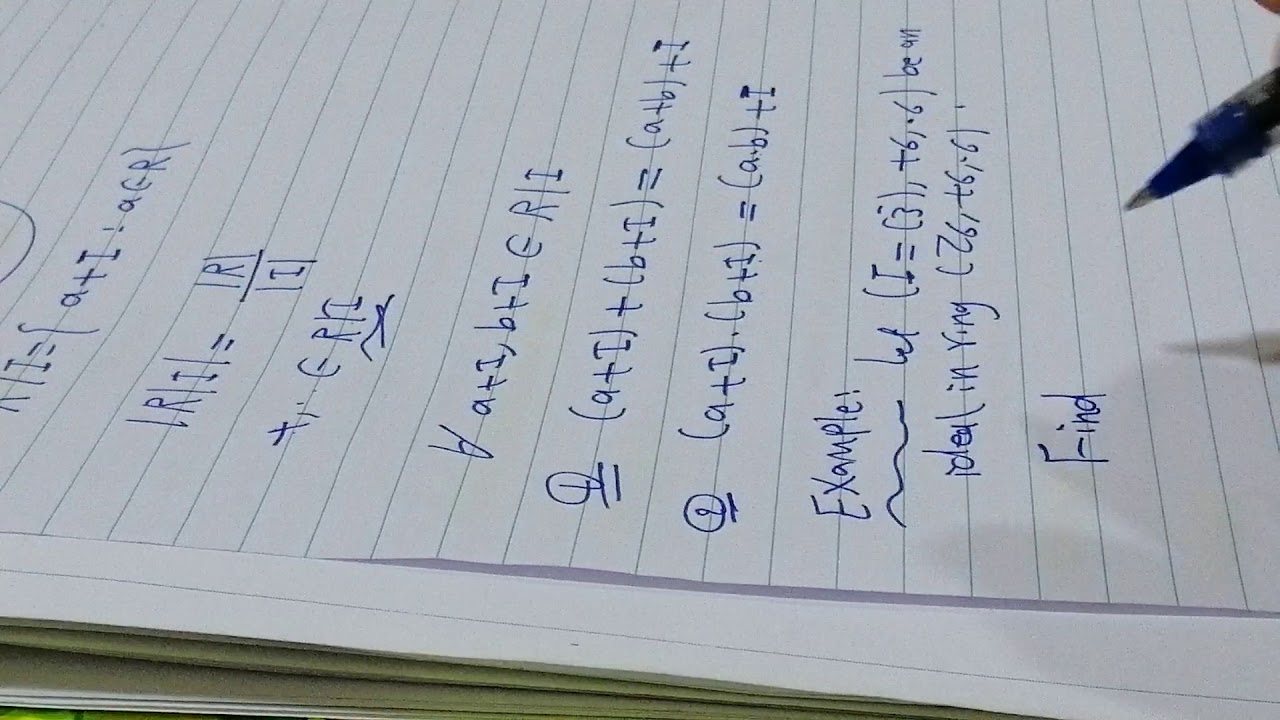 R/I = { a+I : a∈R }
|R/I| = |R| / |I|
+, · ∈ R/I
∀ a+I, b+I ∈ R/I
① (a+I)+(b+I) = (a+b)+I
② (a+I)·(b+I) = (a·b)+I
Example: let (I=(3̄), +6, ·6) be an
ideal in ring (Z6, +6, ·6).
Find